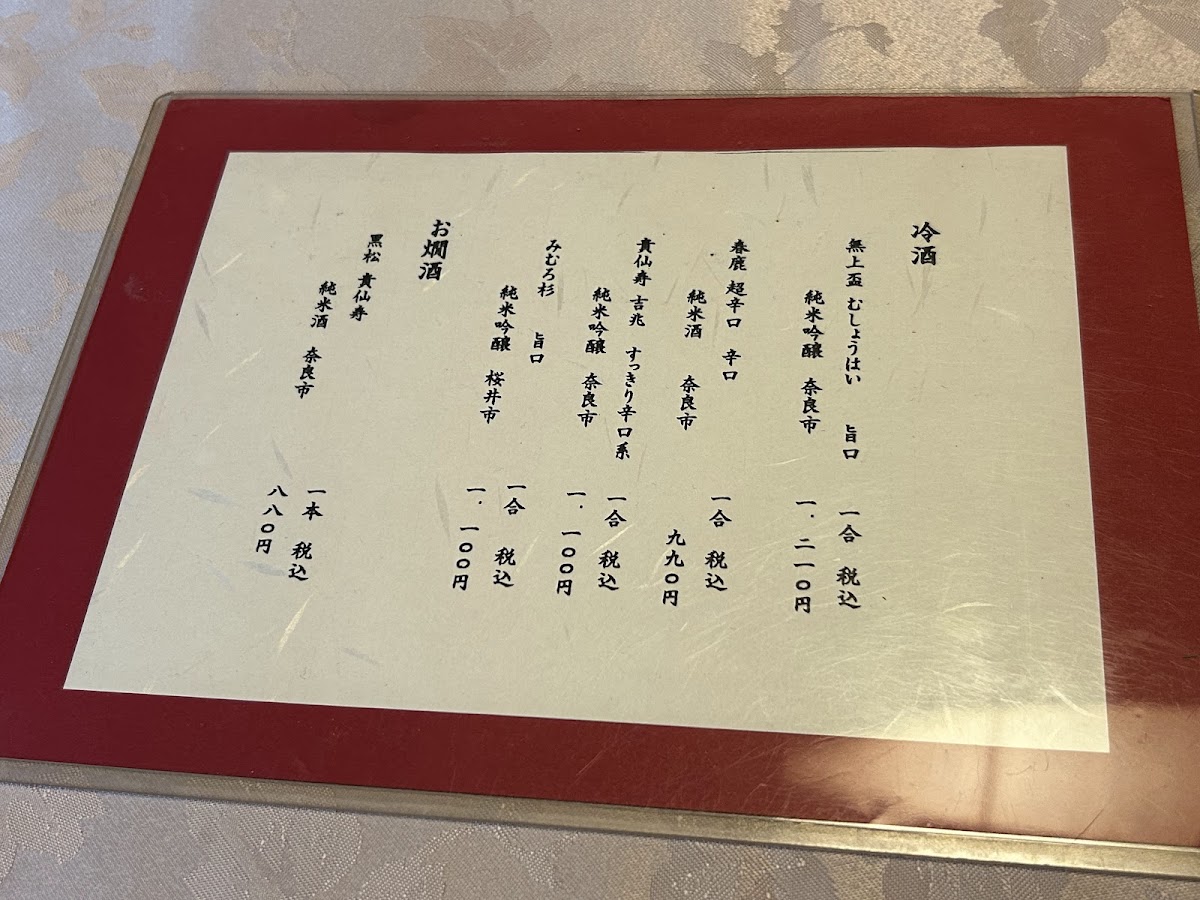 冷酒
無上盃 むしょうはい 旨口
純米吟醸 奈良市
一合 税込
一.二一〇円
春鹿 超辛口 辛口
純米酒 奈良市
一合 税込
九九〇円
貴仙寿 吉兆 すっきり辛口系
純米吟醸 奈良市
一合 税込
一.一〇〇円
みむろ杉 旨口
純米吟醸 桜井市
一合 税込
一.一〇〇円
お燗酒
黒松 貴仙寿
純米酒 奈良市
一本 税込
八八〇円